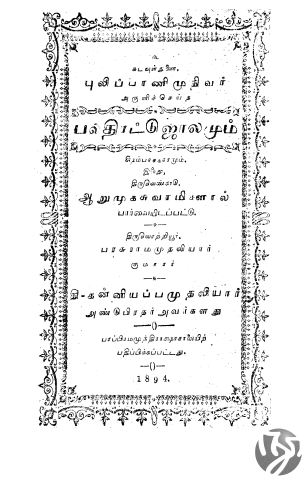 உ
கடவுள்துணை.
புலிப்பாணிமுநிவர்
அருளிச்செய்த
பலதிரட்டுஜாலமும்
இஃது,
ஆறுமுகசுவாமிகளால்
பார்வையிடப்பட்டு.
திருவொற்றியூர்.
பரசுராமமுதலியார்
குமாரர்
தி-கன்னியப்பமுதலியார்
அண்டுபிரதர் அவர்களது
பதிப்பிக்கப்பட்டது.
1894.